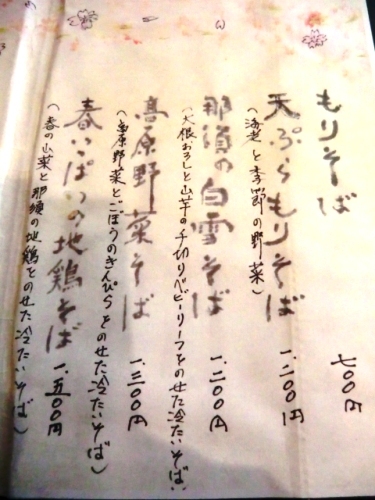 もりそば 七〇〇円
天ぷらもりそば 一、二〇〇円
（海老と季節の野菜）
那須の白雪そば 一、二〇〇円
（大根おろしと山芋の千切りベビーリーフをのせた冷たいそば）
高原野菜そば 一、三〇〇円
（高原野菜とごぼうのきんぴらをのせた冷たいそば）
春いっぱいの地鶏そば 一、五〇〇円
（春の山菜と那須の地鶏をのせた冷たいそば）